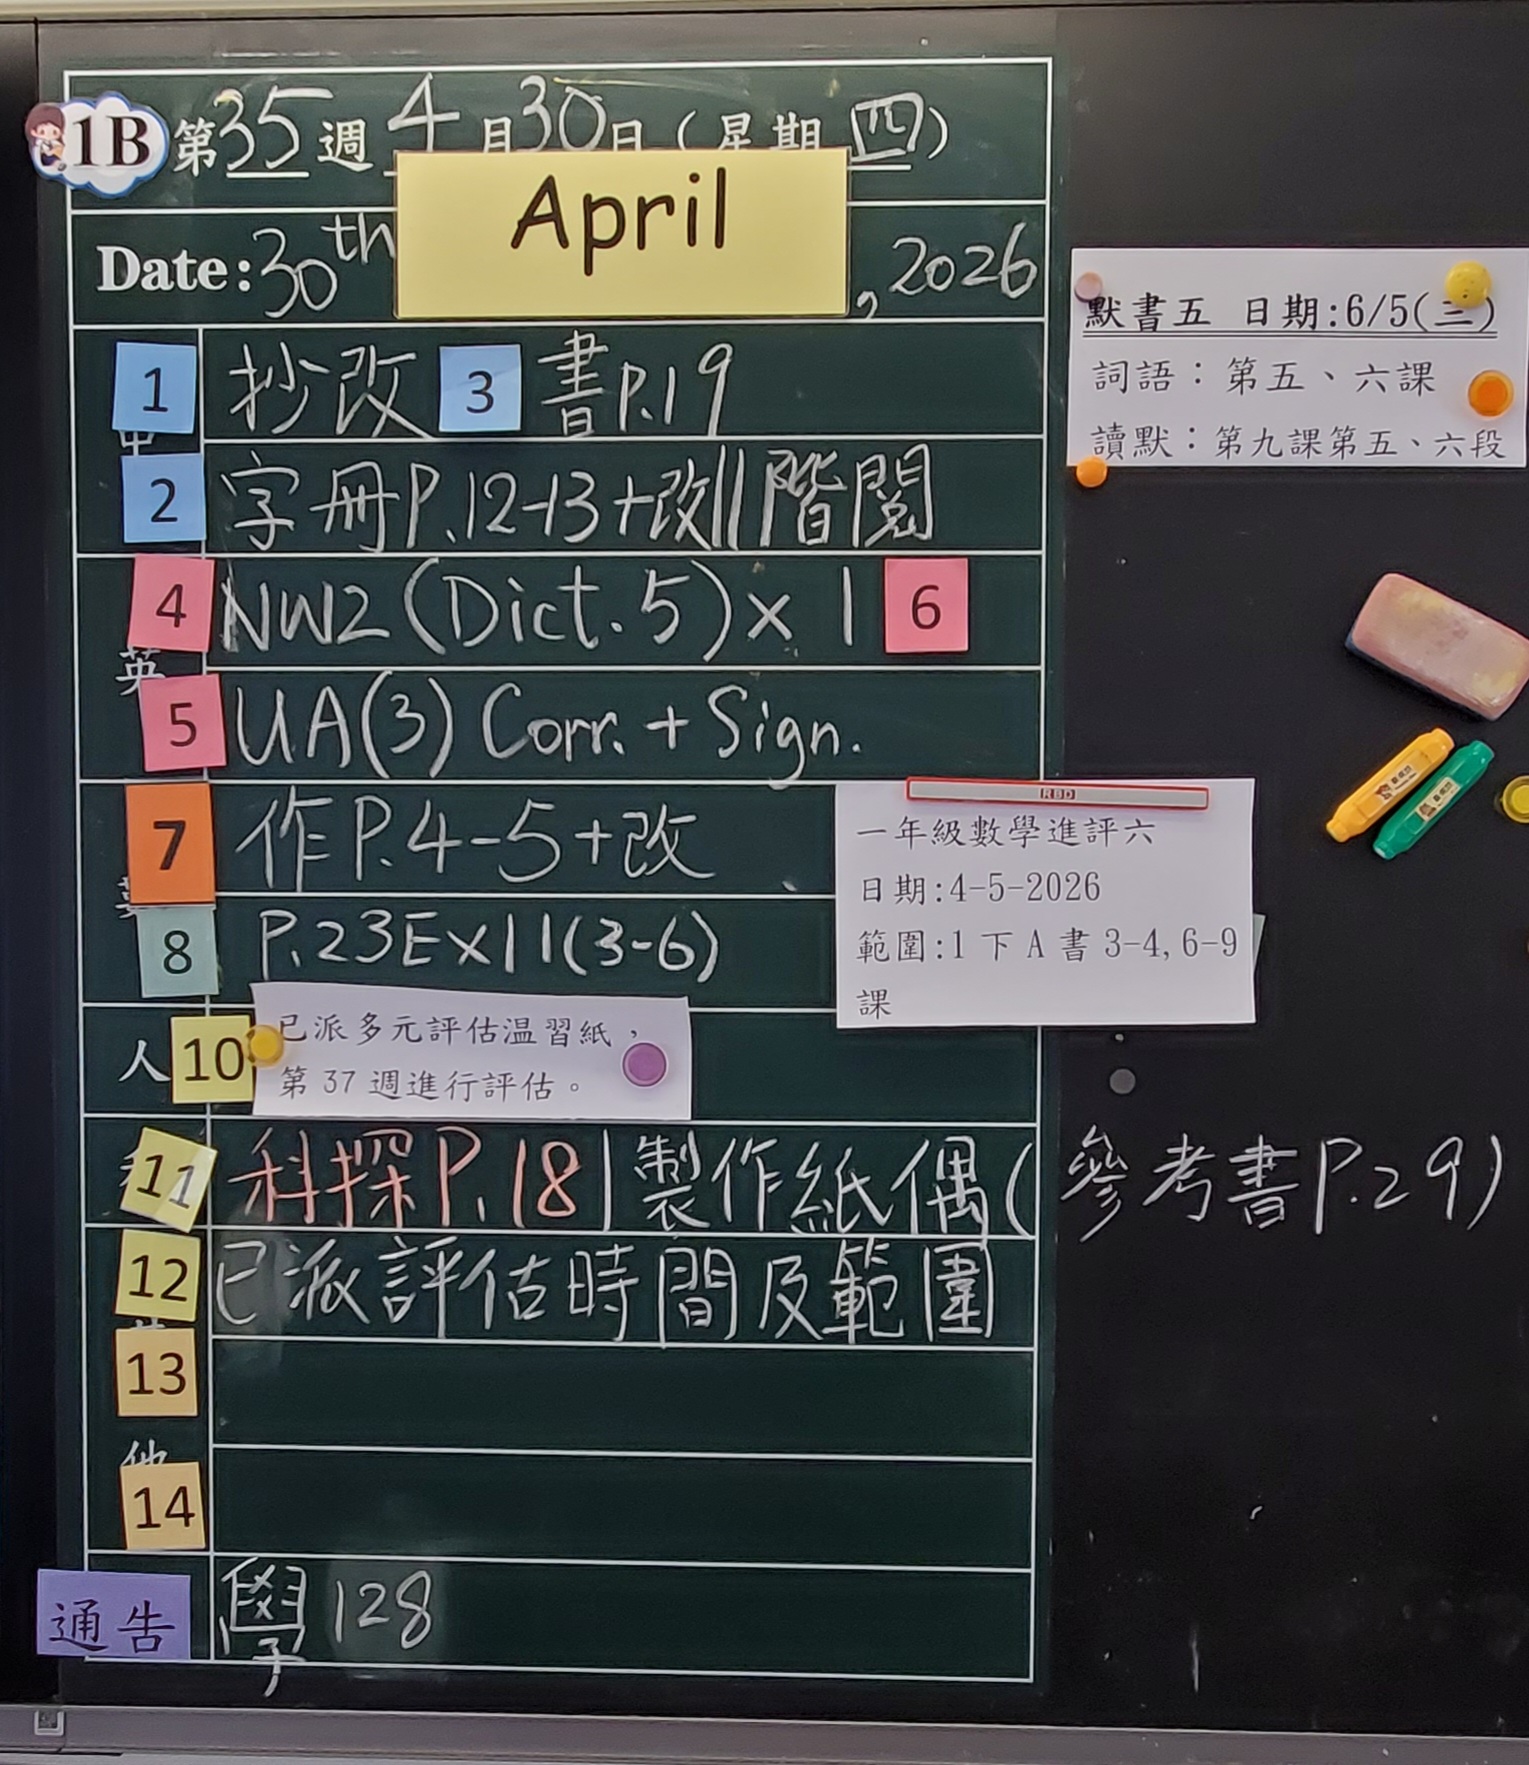 1B 第35週 4月30日(星期四)
Date: 30th April, 2026
1 抄改 3 書P.19
2 字冊P.12-13+改||階閱
4 NW2 (Dict. 5) x 1 6
英
5 UA(3) Corr. + Sign.
7 作P.4-5+改
8 P.23Ex11(3-6)
人 10 已派多元評估温習紙，
第 37 週進行評估。
11 科探P.18|製作紙偶(參考書P.29)
12 已派評估時間及範圍
13
他
14
通告 學128
默書五 日期:6/5(三)
詞語：第五、六課
讀默：第九課第五、六段
RBD
一年級數學進評六
日期:4-5-2026
範圍:1 下 A 書 3-4, 6-9
課